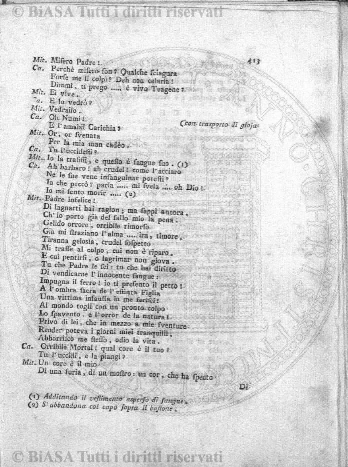 © BiASA Tutti i diritti riservati
413
Mit. Misero Padre!
Ca. Perchè misero son? Qualche sciagura
Forse me lì colpì? Deh non celarla!
Dimmi, ti prego ..... è vivo Teagene?
Mit. Ei vive.
Ca. E lo vedrò?
Mit. Vedrailo.
Ca. Oh Numi! (con trasporto di gioja
E l'amabil Cariclia?
Mit. Or, or svenata
Per la mia man cadèo.
Ca. Tu l'uccidesti?
Mit. Io la trafissi, e questo è sangue suo. (1)
Ca. Ah barbaro! ah crudel! come l'acciaro
Ne le sue vene insanguinar potesti?
In che peccò? parla ..... mi svela ..... oh Dio!
Io mi sento morir ..... (2)
Mit. Padre infelice!
Di lagnarti hai ragion; ma sappi ancora,
Ch'io porto già del fallo mio la pena.
Gelido orrore, orribile rimorso
Già mi straziano l'alma ..... ira, timore,
Tiranna gelosia, crudel sospetto
Mi trasse al colpo, cui non è riparo,
E cui pentirsi, o lagrimar non giova.
Tu che Padre le sei: tu che hai diritto
Di vendicarne l'innocente sangue:
Impugna il ferro: io ti presento il petto!
A l'ombra sacra de l'estinta Figlia
Una vittima infausta in me ferisci!
Al mondo togli con un pronto colpo
Lo spavento, e l'orror de la natura!
Privo di lei, che in mezzo a mie sventure
Render poteva i giorni miei tranquilli,
Abborrisco me stesso, odio la vita.
Ca. Orribile Mortal! qual core è il tuo?
Tu l'uccidi, e la piangi?
Mit. Un core è il mio
Di una furia, di un mostro: un cor, che ha spento
Di
(1) Additando il vestimento asperso di sangue.
(2) S'abbandona col capo sopra il bastone.
© BiASA Tutti i diritti riservati